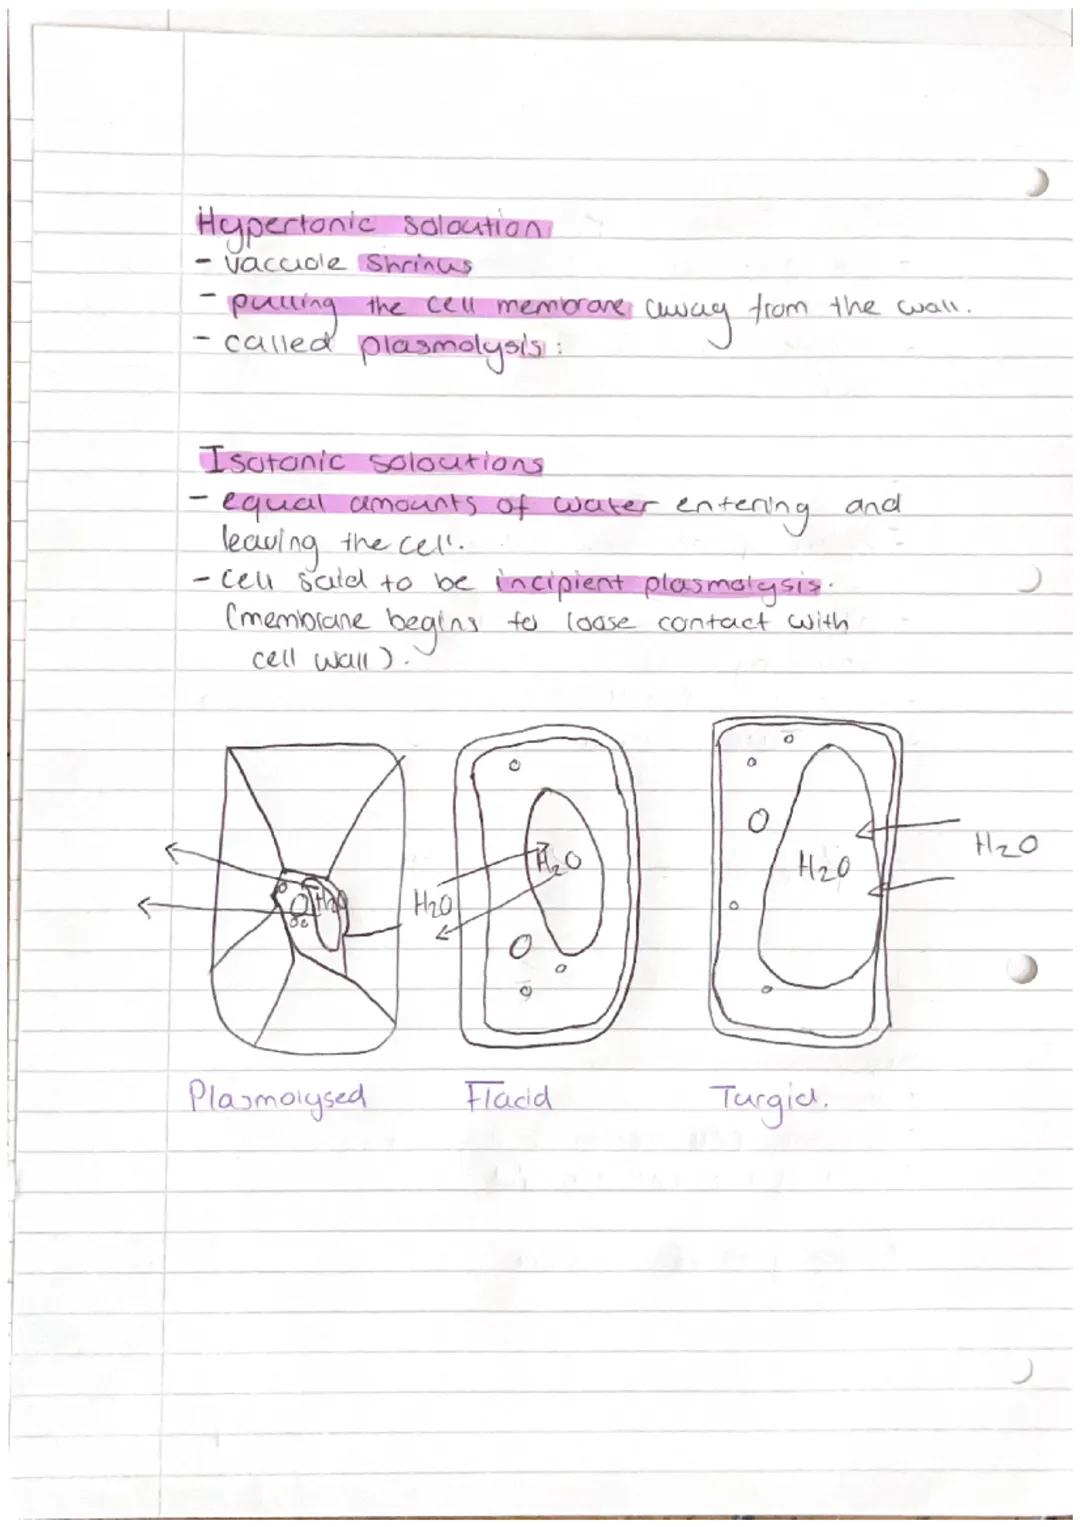 Hypertonic soloution
- vacuole shrinks
- pulling the cell membrane away from the wall.
- called plasmolysis:
Isotonic soloutions
- equal amounts of water entering and
leaving the cell.
- cell said to be incipient plasmolysis.
(membrane begins to loose contact with
cell wall).
H2O H2O H2O H2O H2O
Plasmolysed Flacid Turgid.